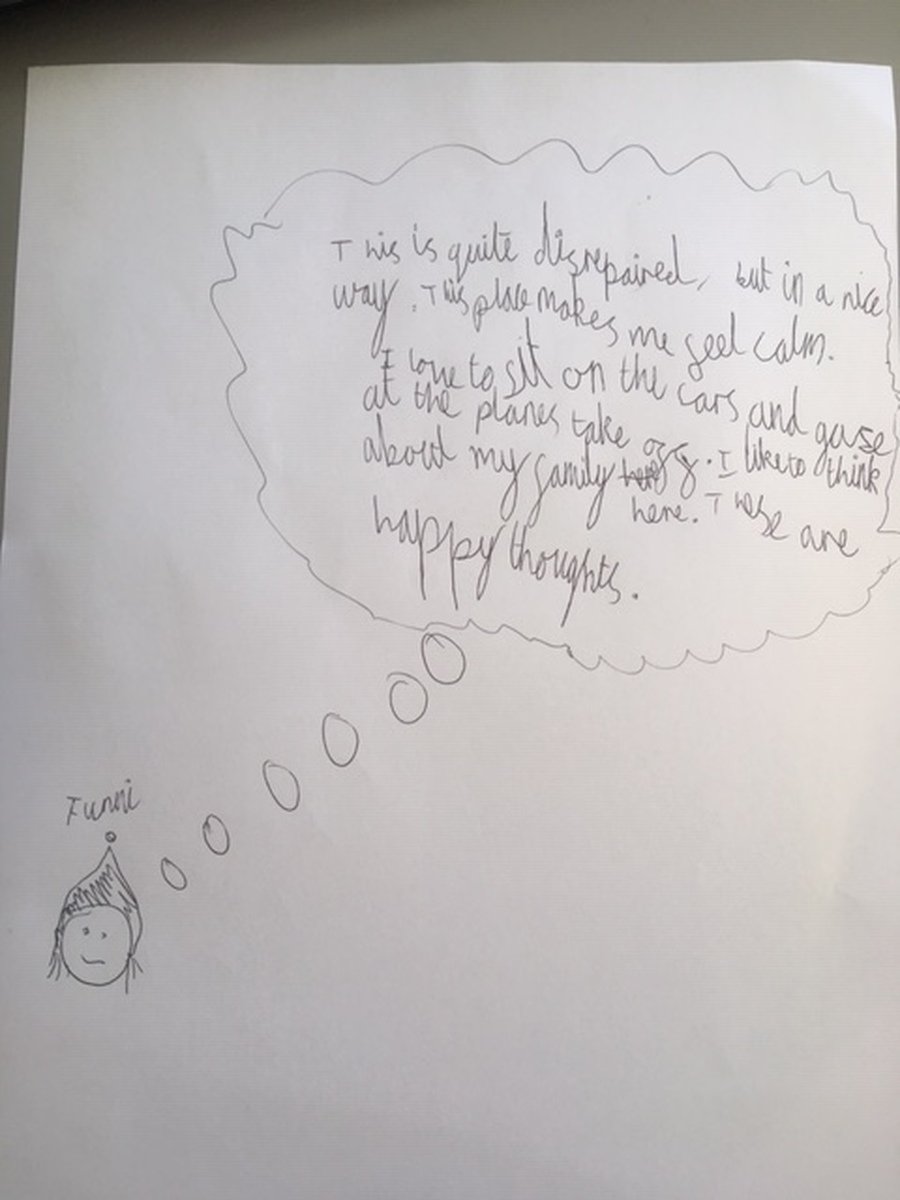 This is quite disrepaired, but in a nice
way. This place makes me feel calm.
I love to sit on the cars and gase
at the planes take off. I like to think
about my family
here. These are
happy thoughts.
Funmi